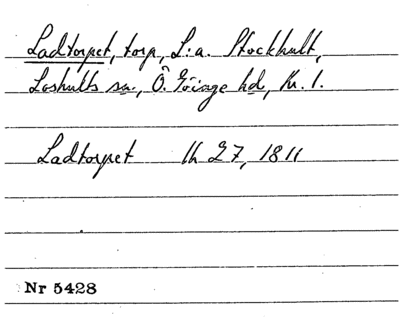 Ladtorpet, torp, L:a. Stockhult,
Loshults sn., Ö. Göinge hd, Kr. l.
Ladtorpet lh 27, 1811
Nr 5428